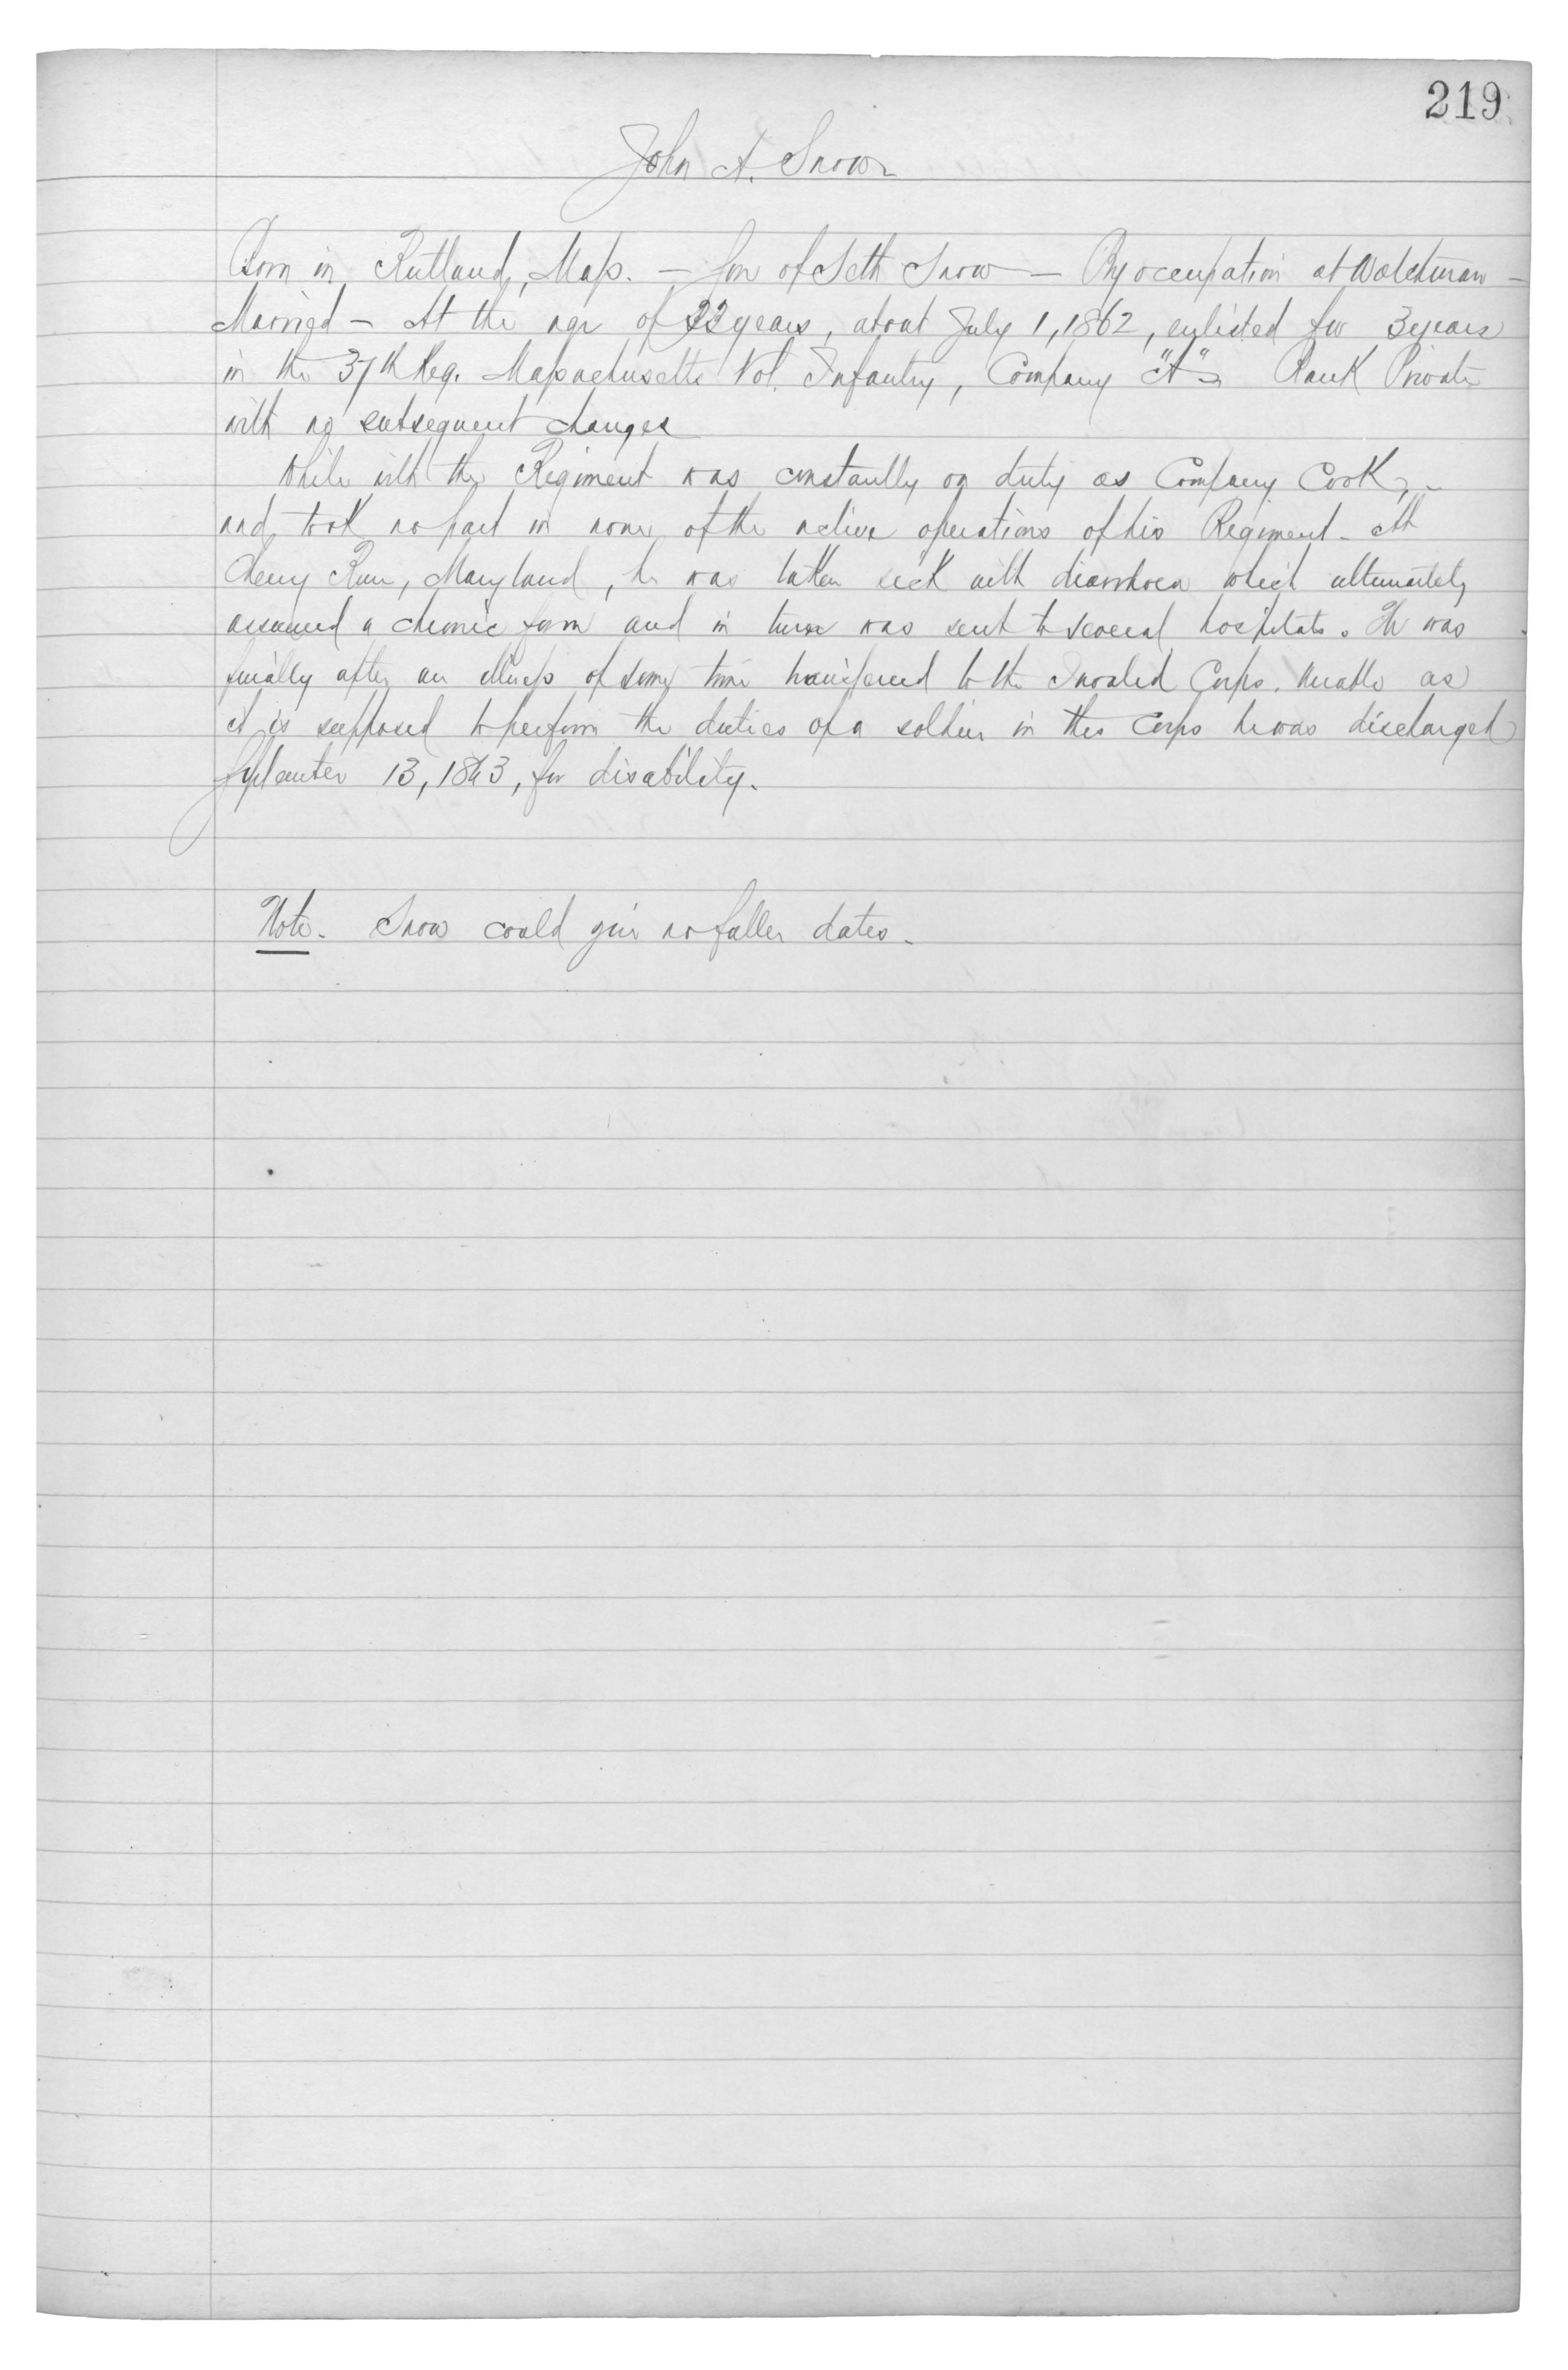 219
John A. Snow
Born in Rutland, Mass. — Son of Seth Snow — By occupation at Watchman —
Married — At the age of years, about July 1, 1862, enlisted for 3 years
in the 37th Reg. Massachusetts Vol. Infantry, Company "A" Rank Private
with no subsequent changes
While with the Regiment was constantly on duty as Company Cook, -
and took no part in none of the active operations of his Regiment - At
Cherry Run, Maryland, he was taken sick with diarrhoea which ultimately
assumed a chronic form and in turn was sent to several hospitals. He was
finally after an illness of some time transfered to the Invalid Corps. Unable as
it is supposed to perform the duties of a soldier in this Corps he was discharged
September 13, 1863, for disability.
Note. Snow could give no fuller dates.